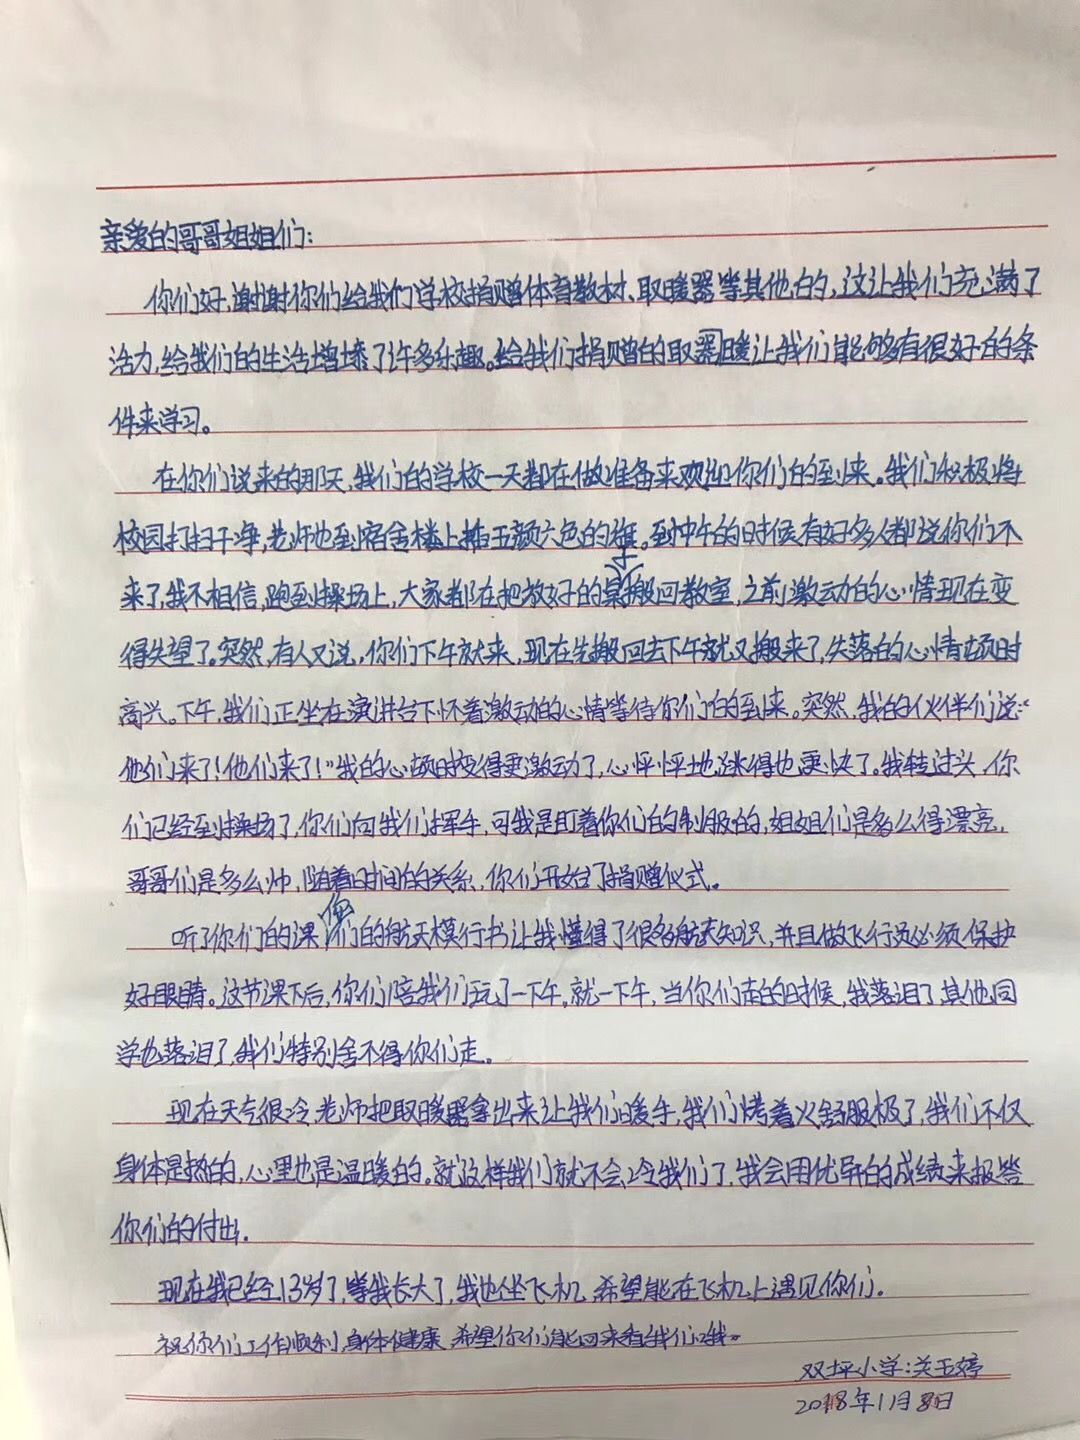 亲爱的哥哥姐姐们:
你们好,谢谢你们给我们学校捐赠体育教材、取暖器等其他的,这让我们充满了
活力,给我们的生活增添了许多乐趣。给我们捐赠的取器暖让我们能够有很好的条
件来学习。
在你们说来的那天,我们的学校一天都在做准备来欢迎你们的到来。我们积极将
校园打扫干净,老师也到宿舍楼上插五颜六色的旗。到中午的时候有好多人都说你们不
来了,我不相信,跑到操场上,大家都在把放好的桌子搬回教室,之前激动的心情现在变
得失望了。突然,有人又说,你们下午就来,现在先搬回去下午就又搬来了,失落的心情顿时
高兴。下午,我们正坐在演讲台下怀着激动的心情等待你们的到来。突然,我的伙伴们说:“
他们来了!他们来了!”我的心顿时变得更激动了,心怦怦地跳得也更快了。我转过头,你
们已经到操场了,你们向我们挥手,可我是盯着你们的制服的,姐姐们是多么得漂亮,
哥哥们是多么帅,随着时间的关系,你们开始了捐赠仪式。
听了你们的课你们的航天模行书让我懂得了很多航天知识,并且做飞行员必须保护
好眼睛。这节课下后,你们陪我们玩了一下午,就一下午,当你们走的时候,我落泪了,其他同
学也落泪了,我们特别舍不得你们走。
现在天气很冷,老师把取暖器拿出来让我们暖手,我们烤着火舒服极了,我们不仅
身体是热的,心里也是温暖的。就这样我们就不会冷我们了,我会用优异的成绩来报答
你们的付出.
现在我已经13岁了,等我长大了,我也坐飞机,希望能在飞机上遇见你们.
祝你们工作顺利,身体健康,希望你们能回来看我们哦。
双坪小学:关玉婷
2018年11月8日